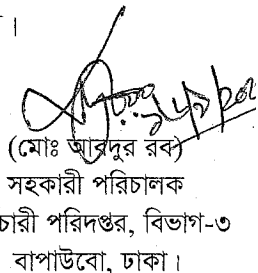 ।
(মোঃ আবদুর রব)
সহকারী পরিচালক
চারী পরিদপ্তর, বিভাগ-৩
বাপাউবো, ঢাকা।